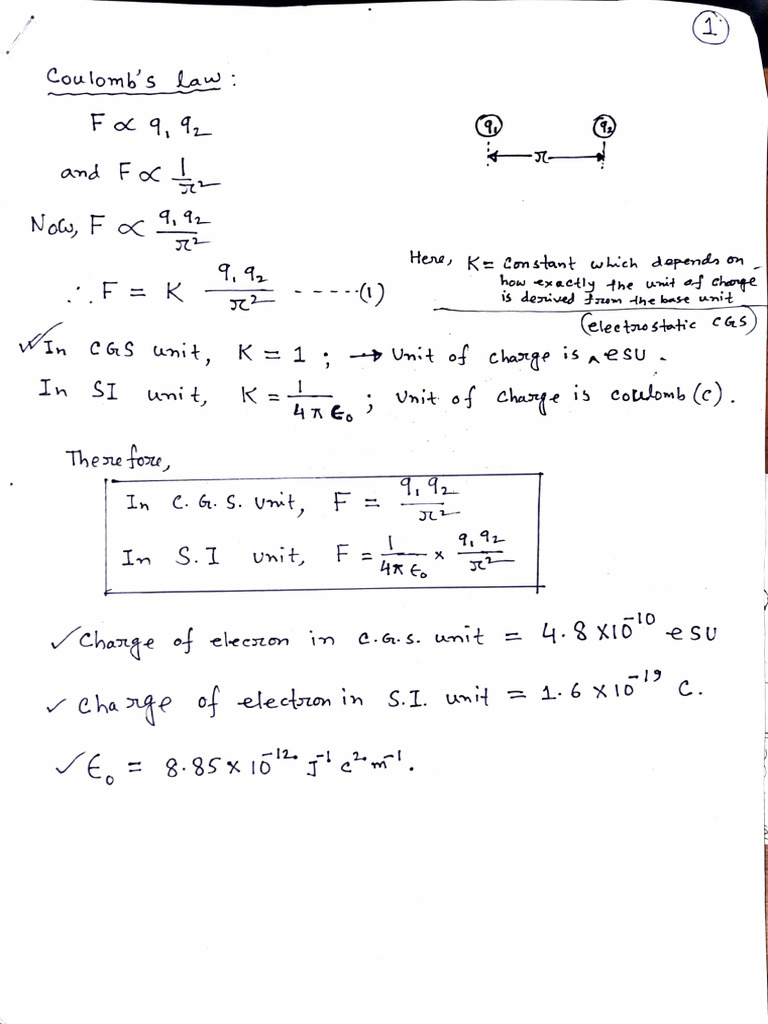 1
Coulomb's law:
F ∝ q₁ q₂
q₁ q₂
r
and F ∝ 1/r²
Now, F ∝ q₁ q₂/r²
∴ F = K q₁ q₂/r² -----(1)
Here, K = Constant which depends on
how exactly the unit of charge
is derived from the base unit
(electrostatic CGS)
✓In CGS unit, K = 1 ; → Unit of charge is ^ esu.
In SI unit, K = 1/4πϵ₀ ; Unit of charge is coulomb (c).
Therefore,
In C.G.S. unit, F = q₁ q₂/r²
In S.I unit, F = 1/4πϵ₀ × q₁ q₂/r²
✓ Charge of elecron in C.G.S. unit = 4.8 X10⁻¹⁰ esu
✓ Charge of electron in S.I. unit = 1.6 X10⁻¹⁹ C.
✓ ϵ₀ = 8.85 × 10⁻¹² J⁻¹ c² m⁻¹.